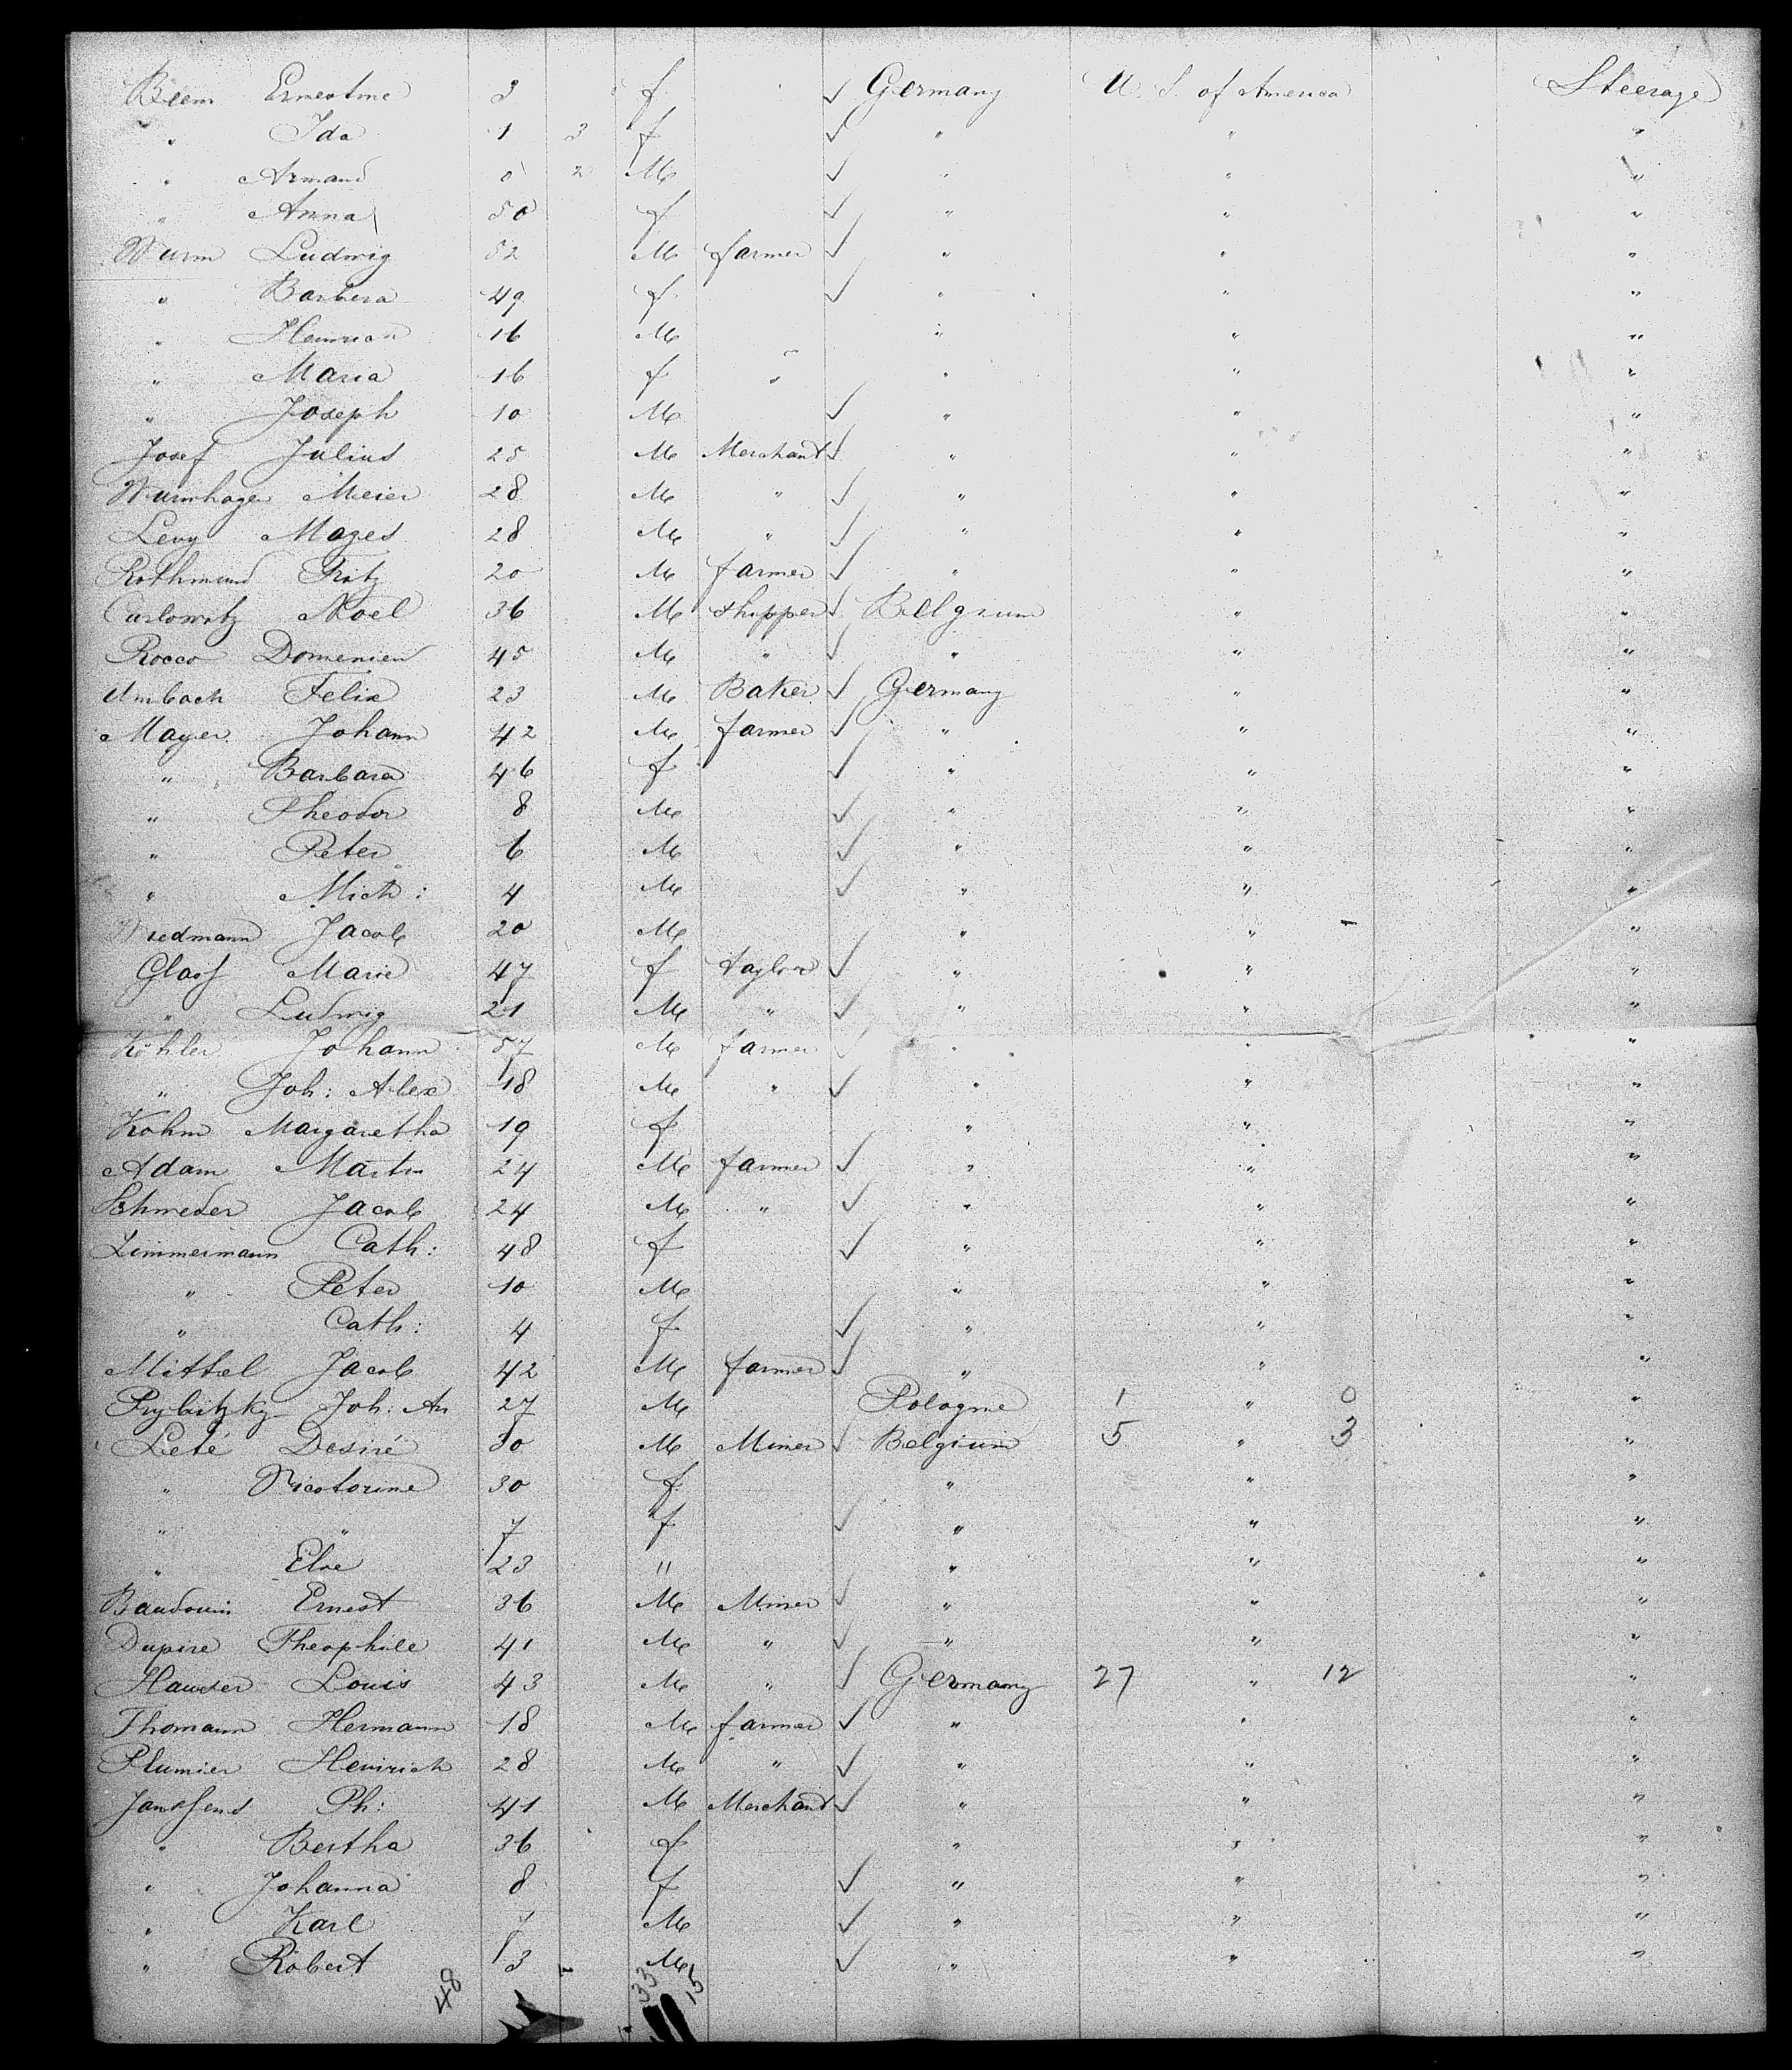 Beem Ernestine 3 f ✓ Germany U. S. of America Steerage
" Ida 1 3 f ✓ " " "
" Armand 0 2 M ✓ " " "
" Anna 50 f ✓ " " "
Wurm Ludwig 52 M farmer ✓ " " "
" Barbera 49 f ✓ " " "
" Heinrich 16 M " " "
" Maria 16 f " " " "
" Joseph 10 M ✓ " " "
Josef Julius 25 M Merchant ✓ " " "
Wurmhage Meier 28 M " ✓ " " "
Levy Mozes 28 M " ✓ " " "
Rothmund Fritz 20 M farmer ✓ " " "
Carlowitz Noel 36 M shipper ✓ Belgium " "
Rocco Domenico 45 M " ✓ " " "
Umbach Felix 23 M Baker ✓ Germany " "
Mayer Johann 42 M farmer ✓ " " "
" Barbara 46 f ✓ " " "
" Theodor 8 M ✓ " " "
" Peter 6 M ✓ " " "
" Mich: 4 M ✓ " " "
Wiedmann Jacob 20 M " " "
Glass Marie 47 f taylor ✓ " " "
" Ludwig 21 M " ✓ " " "
Köhler Johann 57 M farmer ✓ " " "
" Joh: Alex 18 M " ✓ " " "
Kohm Margaretha 19 f " " "
Adam Martin 24 M farmer ✓ " " "
Schmeder Jacob 24 M " ✓ " " "
Zimmermann Cath: 48 f ✓ " " "
" Peter 10 M " " "
" Cath: 4 f ✓ " " "
Mittel Jacob 42 M farmer ✓ " " "
Prybitzky Joh: An 27 M Pologne 1 " 0 "
Leté Desiré 30 M Miner ✓ Belgium 5 " 3 "
" 30 f " " "
" " 7 f ✓ " " "
" Elve 23 " " " "
Baudouin Ernest 36 M Miner ✓ " " "
Dupire Theophile 41 M " ✓ " " "
Hauser Louis 43 M " ✓ Germany 27 " 12 "
Thomann Hermann 18 M farmer ✓ " " "
Plumier Heinrich 28 M " ✓ " " "
Janssens Ph: 41 M Merchand ✓ " " "
" Bertha 36 f " " "
" Johanna 8 f ✓ " " "
" Karl 7 M ✓ " " "
" Robert 3 M ✓ " " "
48 33 15